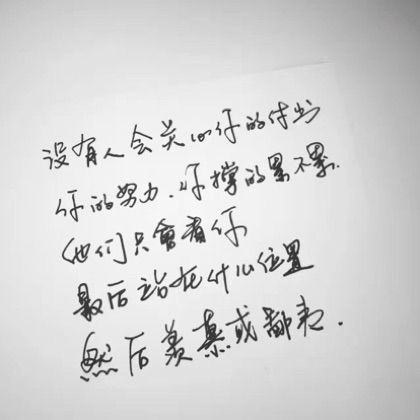 没有人会关心你的付出
你的努力.你撑的累不累.
他们只會看你
最后站在什么位置
然后羡慕或鄙夷.